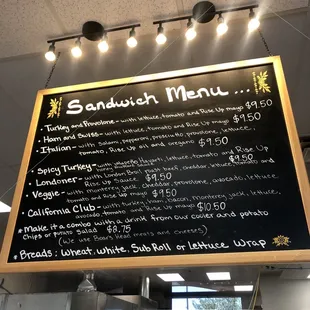 Sandwich Menu...
• Turkey and Provolone - with lettuce, tomato and Rise Up mayo $9.50
• Ham and Swiss - with lettuce, tomato and Rise Up mayo $9.50
• Italian - with Salami, pepperoni, prosciutto, provolone, lettuce,
tomato, Rise Up oil and oregano $9.50
Spicy Turkey - with Jalapeño Havarti, lettuce, tomato and Rise Up
$9.50
• Londoner - with London Broil roast beef, cheddar, lettuce, tomato and
Rise Up Sauce $9.50
• Veggie - with monterey Jack, cheddar, provolone, avocado, lettuce
tomato and Rise Up mayo $9.50
• California Club - with turkey, ham, bacon, monterey Jack, lettuce,
avocado, tomato and Rise Up mayo $10.50
• Make it a combo with a drink from our cooler and potato
Chips or potato Salad $2.75
(We use Boars Head meats and cheeses)
• Breads: Wheat, White, Sub Roll or Lettuce Wrap